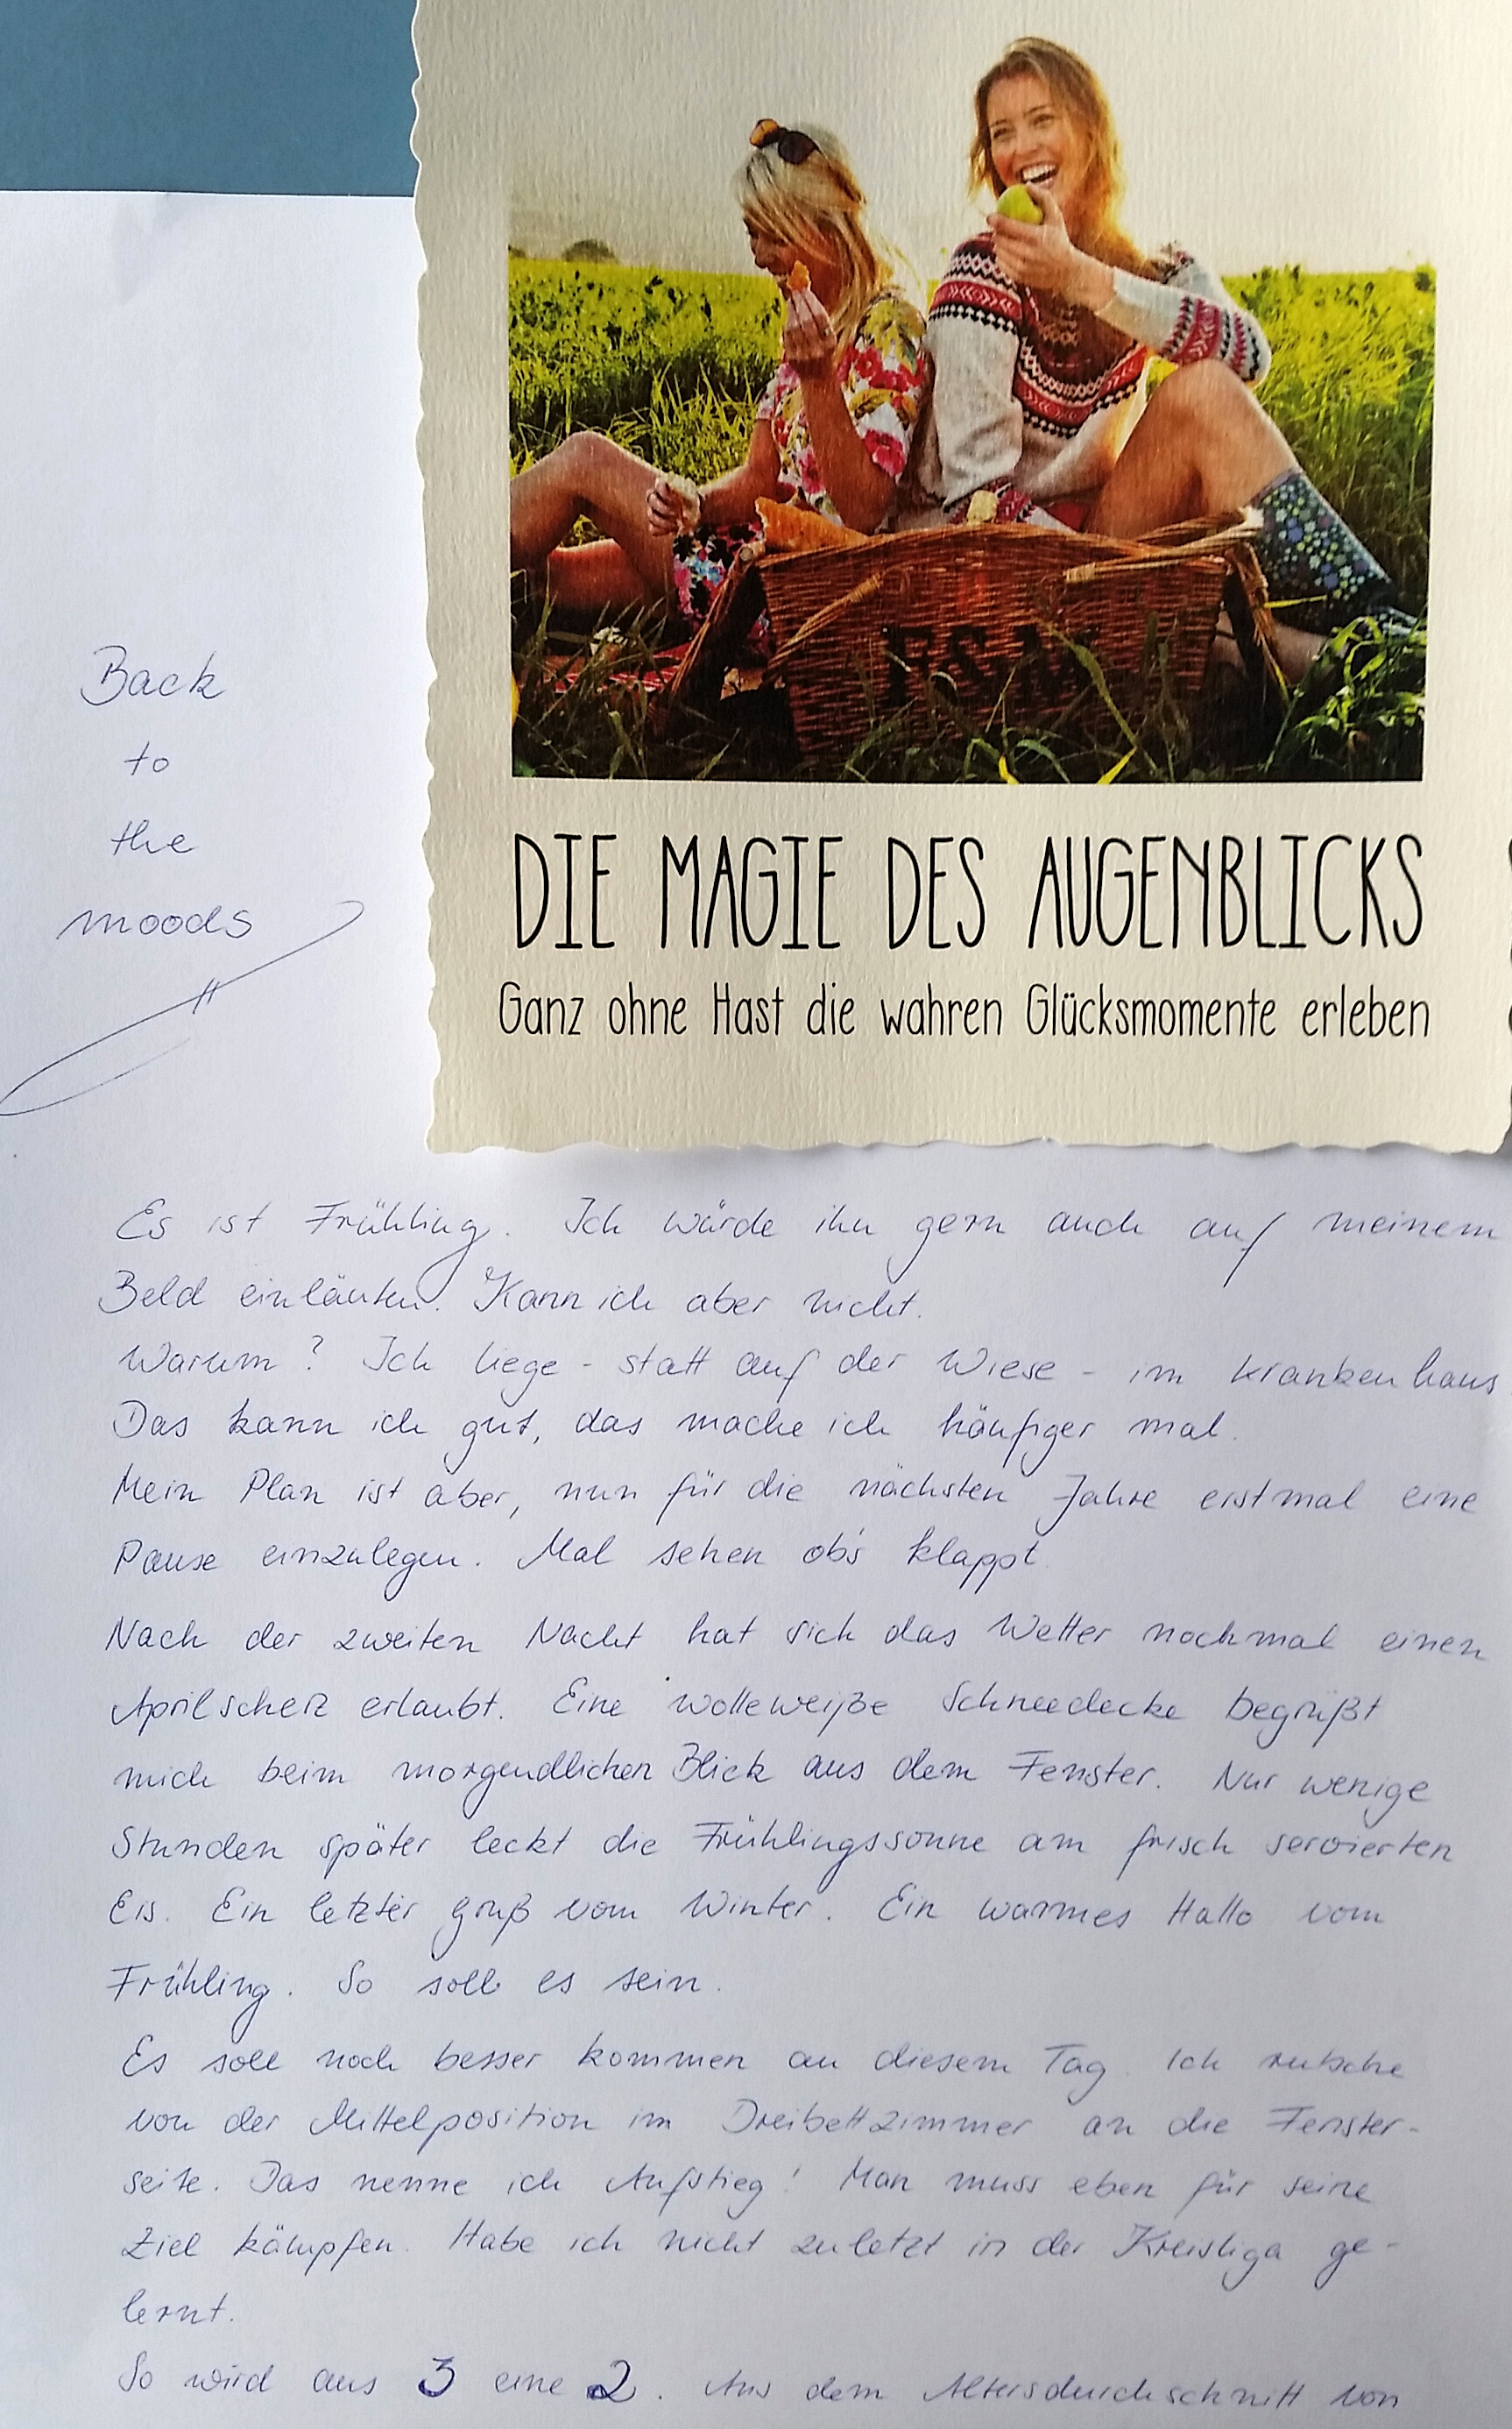 Back
to
the
moods
F&M
DIE MAGIE DES AUGENBLICKS
Ganz ohne Hast die wahren Glücksmomente erleben
Es ist Frühling. Ich würde ihn gern auch auf meinem
Beld einläuten. Kann ich aber nicht.
Warum? Ich liege - statt auf der Wiese - im Krankenhaus
Das kann ich gut, das mache ich häufiger mal.
Mein Plan ist aber, nun für die nächsten Jahre erstmal eine
Pause einzulegen. Mal sehen ob's klappt.
Nach der zweiten Nacht hat sich das Wetter nochmal einen
Aprilscherz erlaubt. Eine wolleweiße Schneedecke begrüßt
mich beim morgendlichen Blick aus dem Fenster. Nur wenige
Stunden später leckt die Frühlingssonne am frisch servierten
Eis. Ein letzter Gruß vom Winter. Ein warmes Hallo vom
Frühling. So soll es sein.
Es soll noch besser kommen an diesem Tag. Ich rutsche
von der Mittelposition im Dreibettzimmer an die Fenster-
seite. Das nenne ich Aufstieg! Man muss eben für seine
Ziel kämpfen. Habe ich nicht zuletzt in der Kreisliga ge-
lernt.
So wird aus 3 eine 2. Aus dem Altersdurchschnitt von